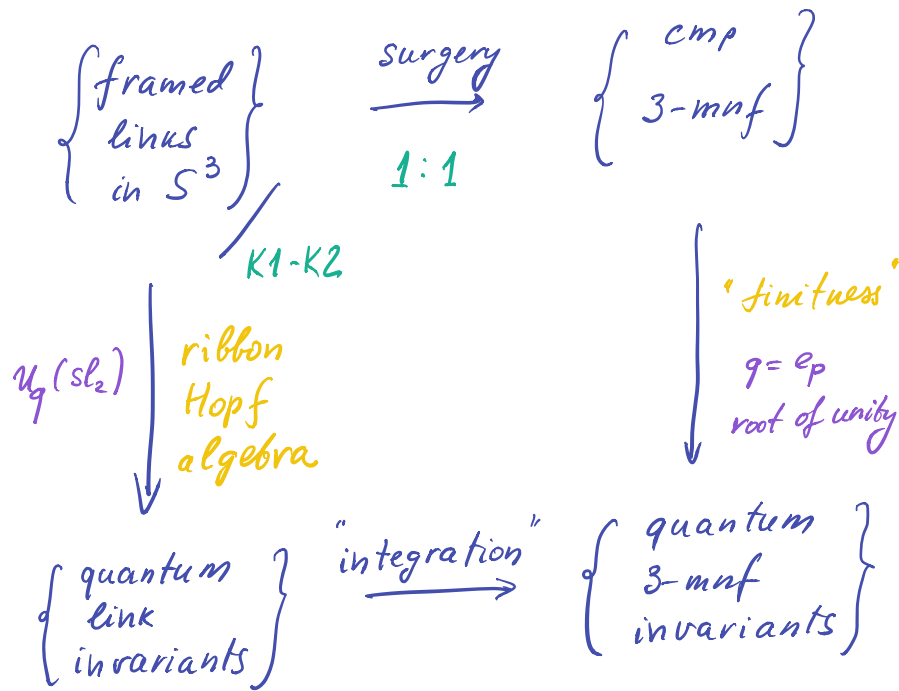 framed
links
in S³
surgery
1:1
cmp
3-mnf
K1-K2
U_q(sl₂)
ribbon
Hopf
algebra
"finitness"
q = e_p
root of unity
quantum
link
invariants
"integration"
quantum
3-mnf
invariants